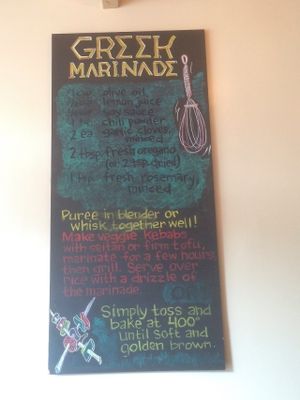 GREEK
MARINADE
cup olive oil
lemon juice
soy sauce
chili powder
2 ea garlic cloves,
minced
2 tbsp fresh oregano
(or 2 tsp dried)
fresh rosemary
minced
Puree in blender or
whisk together well!
Make veggie kebabs
with seitan or firm tofu,
marinate for a few hours,
then grill. Serve over
rice with a drizzle of
the marinade.
Or...
Simply toss and
bake at 400°
until soft and
golden brown.